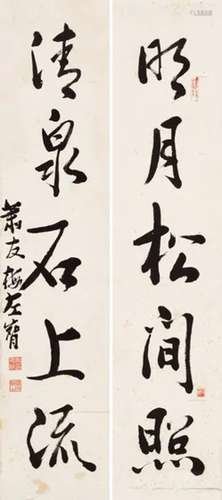 明月松间照
清泉石上流
萧友梅左臂